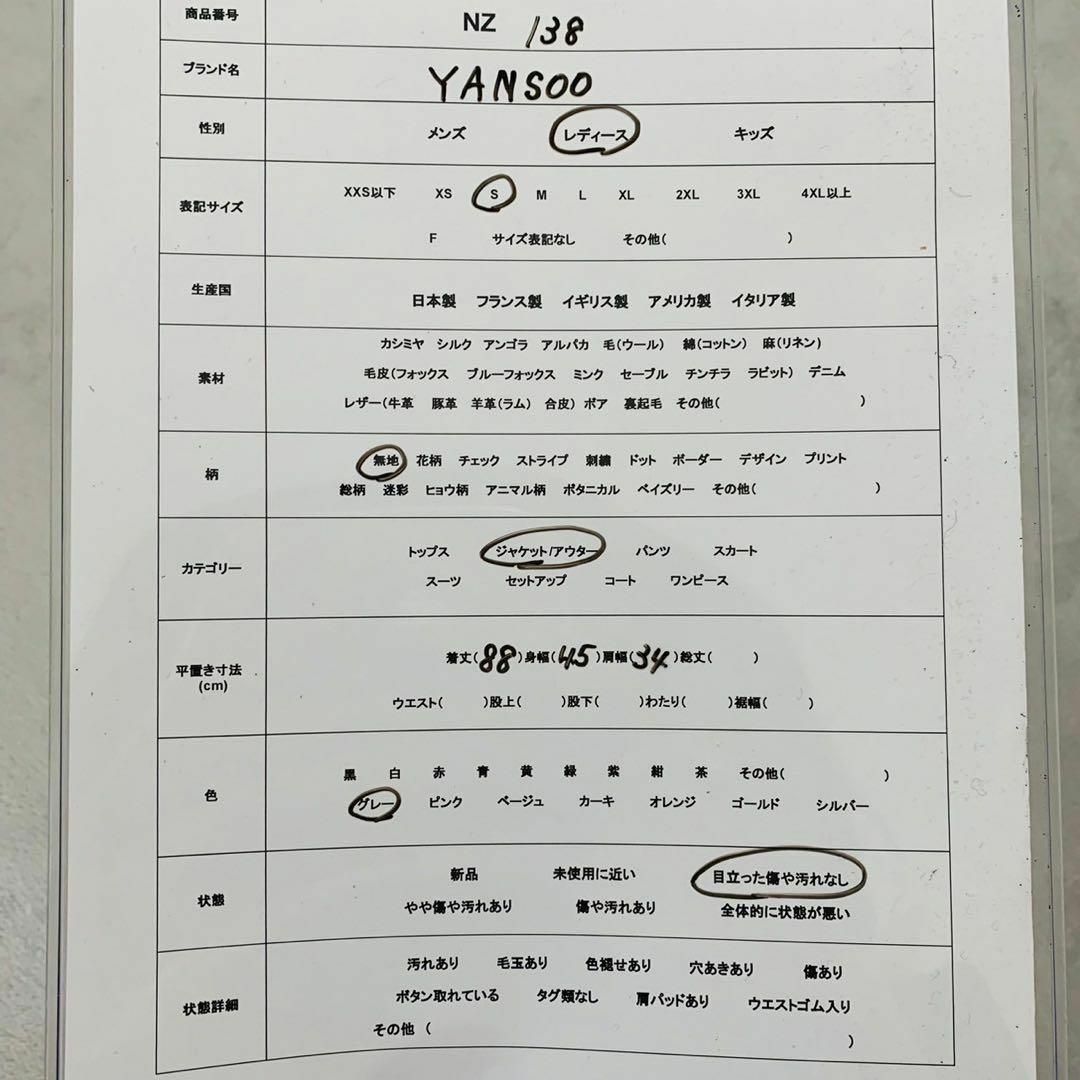 商品番号 NZ 138
ブランド名 YANSOO
性別 メンズ レディース キッズ
表記サイズ XXS以下 XS S M L XL 2XL 3XL 4XL以上
F サイズ表記なし その他( )
生産国 日本製 フランス製 イギリス製 アメリカ製 イタリア製
素材 カシミヤ シルク アンゴラ アルパカ 毛(ウール) 綿(コットン) 麻(リネン)
毛皮(フォックス ブルーフォックス ミンク セーブル チンチラ ラビット) デニム
レザー(牛革 豚革 羊革(ラム) 合皮) ボア 裏起毛 その他( )
柄 無地 花柄 チェック ストライプ 刺繍 ドット ボーダー デザイン プリント
総柄 迷彩 ヒョウ柄 アニマル柄 ボタニカル ペイズリー その他( )
カテゴリー トップス ジャケット/アウター パンツ スカート
スーツ セットアップ コート ワンピース
平置き寸法 着丈(88)身幅(45)肩幅(34)総丈( )
(cm) ウエスト( )股上( )股下( )わたり( )裾幅( )
色 黒 白 赤 青 黄 緑 紫 紺 茶 その他( )
グレー ピンク ベージュ カーキ オレンジ ゴールド シルバー
状態 新品 未使用に近い 目立った傷や汚れなし
やや傷や汚れあり 傷や汚れあり 全体的に状態が悪い
状態詳細 汚れあり 毛玉あり 色褪せあり 穴あきあり 傷あり
ボタン取れている タグ類なし 肩パッドあり ウエストゴム入り
その他 ( )